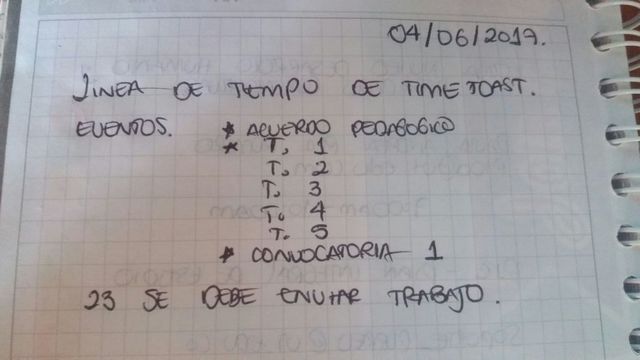 04/06/2019.
LINEA DE TIEMPO DE TIMETOAST.
EVENTOS. * ACUERDO PEDAGOGICO
* T. 1
T. 2
T. 3
T. 4
T. 5
* CONVOCATORIA 1
23 SE DEBE ENVIAR TRABAJO.